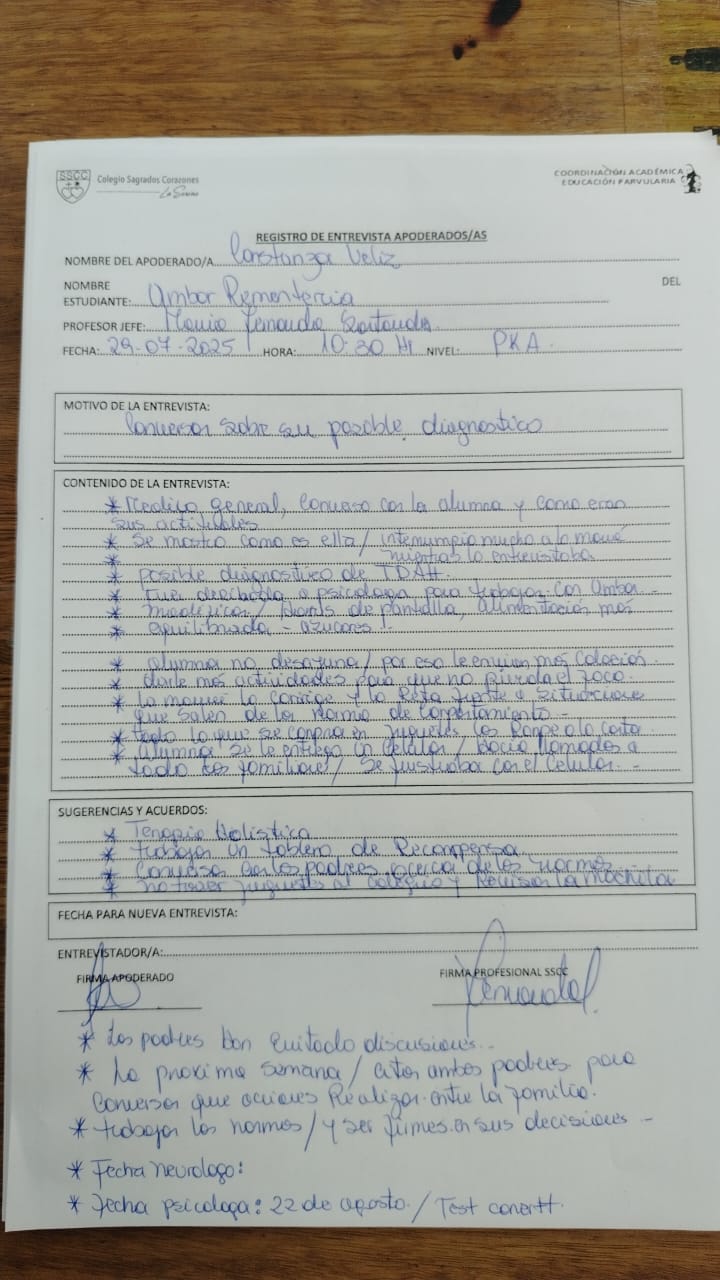 SSCC
Colegio Sagrados Corazones
La Serena
COORDINACIÓN ACADÉMICA
EDUCACIÓN PARVULARIA
REGISTRO DE ENTREVISTA APODERADOS/AS
NOMBRE DEL APODERADO/A Constanza Veliz
NOMBRE DEL
ESTUDIANTE: Ambar Rementeria
PROFESOR JEFE: Maria Fernanda
FECHA: 29-07-2025 HORA: 10:30 Hr NIVEL: PKA.
MOTIVO DE LA ENTREVISTA:
Conversar sobre su posible diagnostico
CONTENIDO DE LA ENTREVISTA:
* Medico general, converso con la alumna y como eran
sus actitudes
* Se mostro como es ella / interrumpio mucho a la mamá
* mientras la entrevistaba
* posible diagnostico de TDAH.
* Fue derivada a psicologa para trabajar con Ambar -
* / horas de pantalla, alimentacion mas
* equilibrada - azucares !.
* alumna no desayuna / por eso le envian más colacion.
* darle más actividades para que no pierda el foco.
* La mamá la corrige y la Reta frente a situaciones
que salen de la norma de comportamiento -
* todo lo que se compra en juguetes, los Rompe o los corta
* Alumna se le entrego un celular / hacia llamados a
todo los familiares / Se frustraba con el celular. -
SUGERENCIAS Y ACUERDOS:
* Terapia Holistica
* trabajar un tablero de Recompensa
* Conversar con los padres acerca de las normas
* no traer juguetes al colegio y Revisar la mochila
FECHA PARA NUEVA ENTREVISTA:
ENTREVISTADOR/A:
FIRMA APODERADO FIRMA PROFESIONAL SSCC
* Los padres han evitado discusiones. -
* La proxima semana / citar ambos padres para
Conversar que acciones Realizar entre la familia.
* trabajar las normas / y ser firmes en sus decisiones -
* Fecha neurologo:
* Fecha psicologa: 22 de agosto. / Test